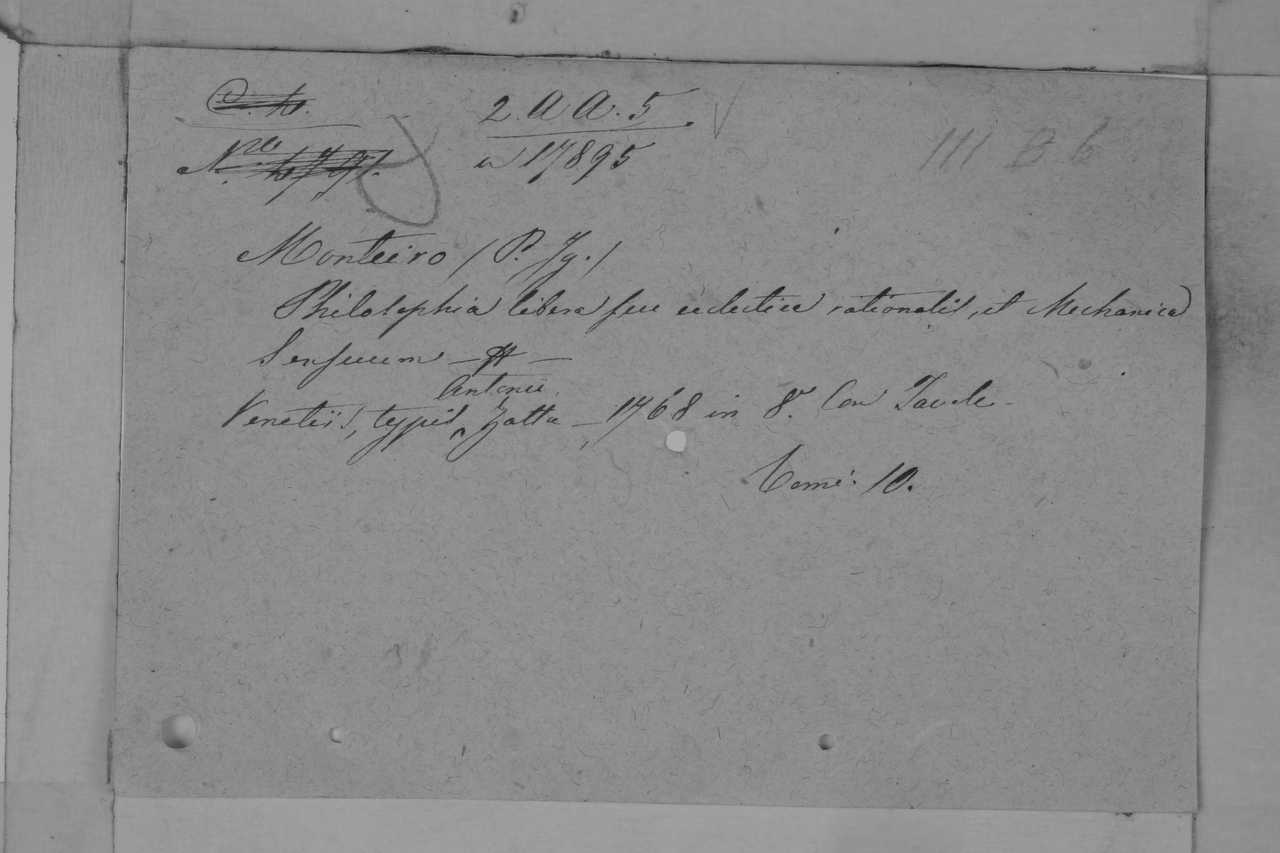 2. A A. 5.
III B 6
N.ro
a 17895
Monteiro / P. Ig. /
Philosophia libera seu eclectica rationalis, et Mechanica
Sensuum — —
Antonii
Venetiis, typis Zatta — 1768 in 8.° Con Tavole
Tomi. 10.